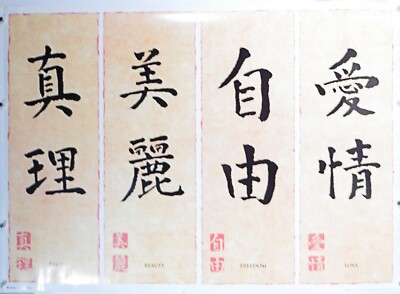 真理
美麗
自由
愛情
真理
美麗
自由
愛情
BEAUTY
FREEDOM
LOVE